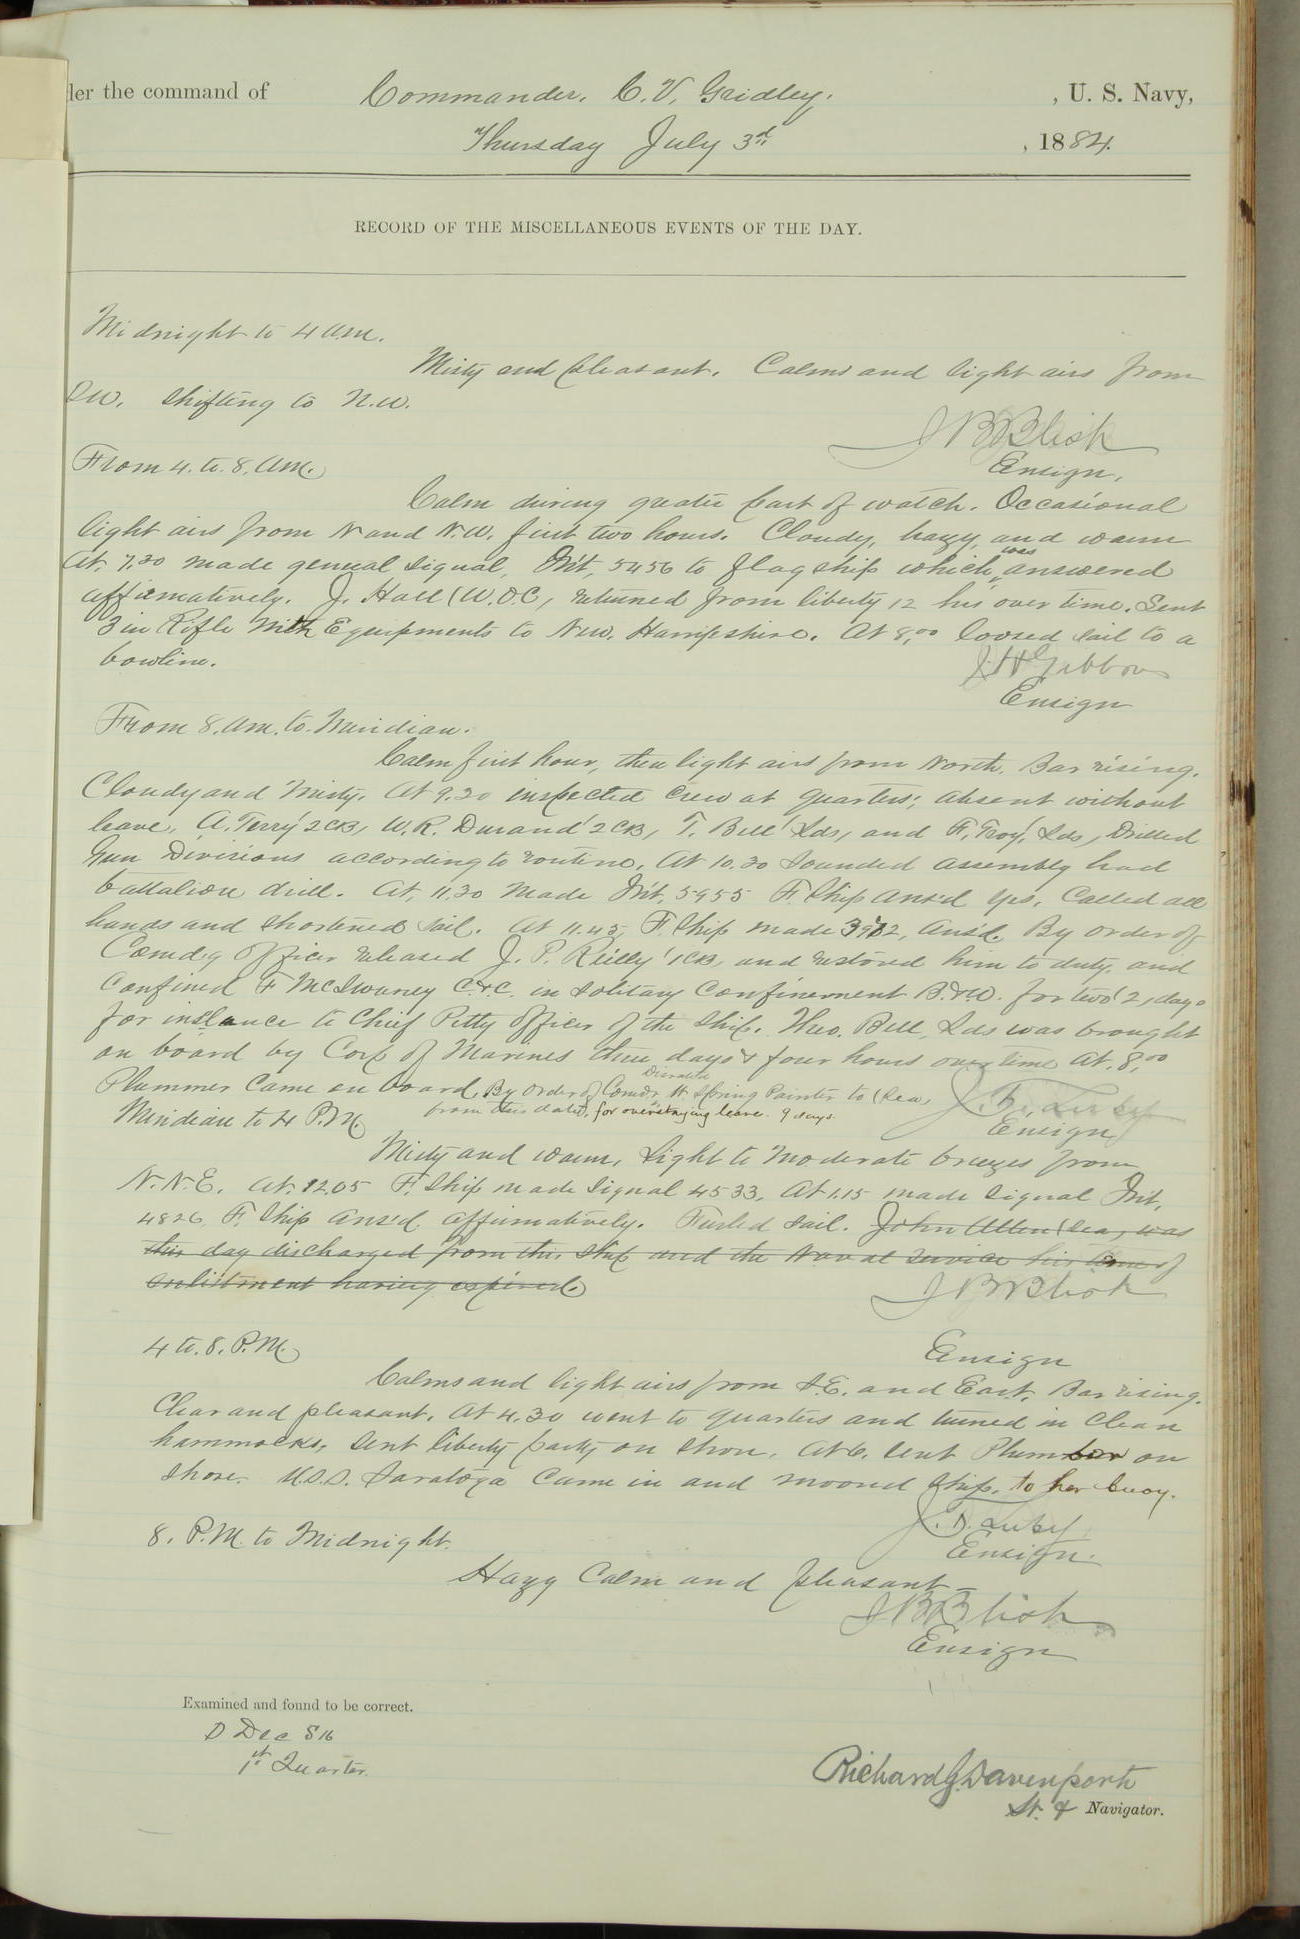 der the command of Commander. C. V. Gridley. , U. S. Navy,
Thursday July 3d , 1884.
RECORD OF THE MISCELLANEOUS EVENTS OF THE DAY.
Midnight to 4 a.m.
Misty and pleasant. Calms and light airs from
SW. shifting to N.W.
J B Blish
Ensign.
From 4. to 8. a.m.
Calm during greater part of watch. Occasional
light airs from N and N.W. first two hours. Cloudy, hazy, and warm
At. 7.30 made general signal, Int, 5456 to flagship which was answered
affirmatively. J. Hall (W.O.C, returned from liberty 12 hrs over time. Sent
3 in Rifle With Equipments to New. Hampshire. At 8.00 loosed sail to a
bowline.
J. H Gibbons
Ensign
From 8. a.m. to. Meridian.
Calm first hour, then light airs from North. Bar rising.
Cloudy and misty. At 9.20 inspected crew at quarters; absent without
leave, A. Terry 2CB, W. R. Durand 2CB, T. Bell Lds, and F. Troy, Lds, Drilled
Gun Divisions according to routine. At 10.30 sounded assembly had
battalion drill. At, 11.30 Made Int, 5955 F. Ship Ans'd yes. Called all
hands and shortened sail. At 11.45, F. Ship made 3982, Ans'd. By order of
Comdg Officer released J. P. Reilly 1CB, and restored him to duty, and
confined F McSwaney C.&C. in solitary confinement B.&W. for two 2, days
for insolence to Chief Petty Officer of the ship. Theo. Bell, Lds was brought
on board by Corp of Marines three days & four hours over time At. 8.00
Plummer Came on board. By order of Comdr H Spring Painter to (Sea,
Disrated
from this date, for overstaying leave. 9 days.
J. D.
Ensign
Meridian to 4 P.M.
Misty and warm. Light to moderate breezes from
N.N.E. At. 12.05 F. Ship made signal 4533. At 1.15 made signal Int.
4826 F. Ship Ans'd affirmatively. Furled sail. John Allen (Sea, was
this day discharged from this ship and the Naval service his term of
enlistment having expired.
J B Blish
Ensign
4 to. 8. P.M.
Calms and light airs from S.E. and East. Bar rising.
Clear and pleasant. At 4.30 went to quarters and turned in clean
hammocks. Sent liberty party on shore. At 6. sent Plumber on
shore. U.S.S. Saratoga came in and moored ship. to her buoy.
J. D.
Ensign.
8. P.M. to Midnight.
Hazy Calm and pleasant
J B Blish
Ensign
Examined and found to be correct.
1st Quarter.
Richard G. Davenport
Lt. & Navigator.